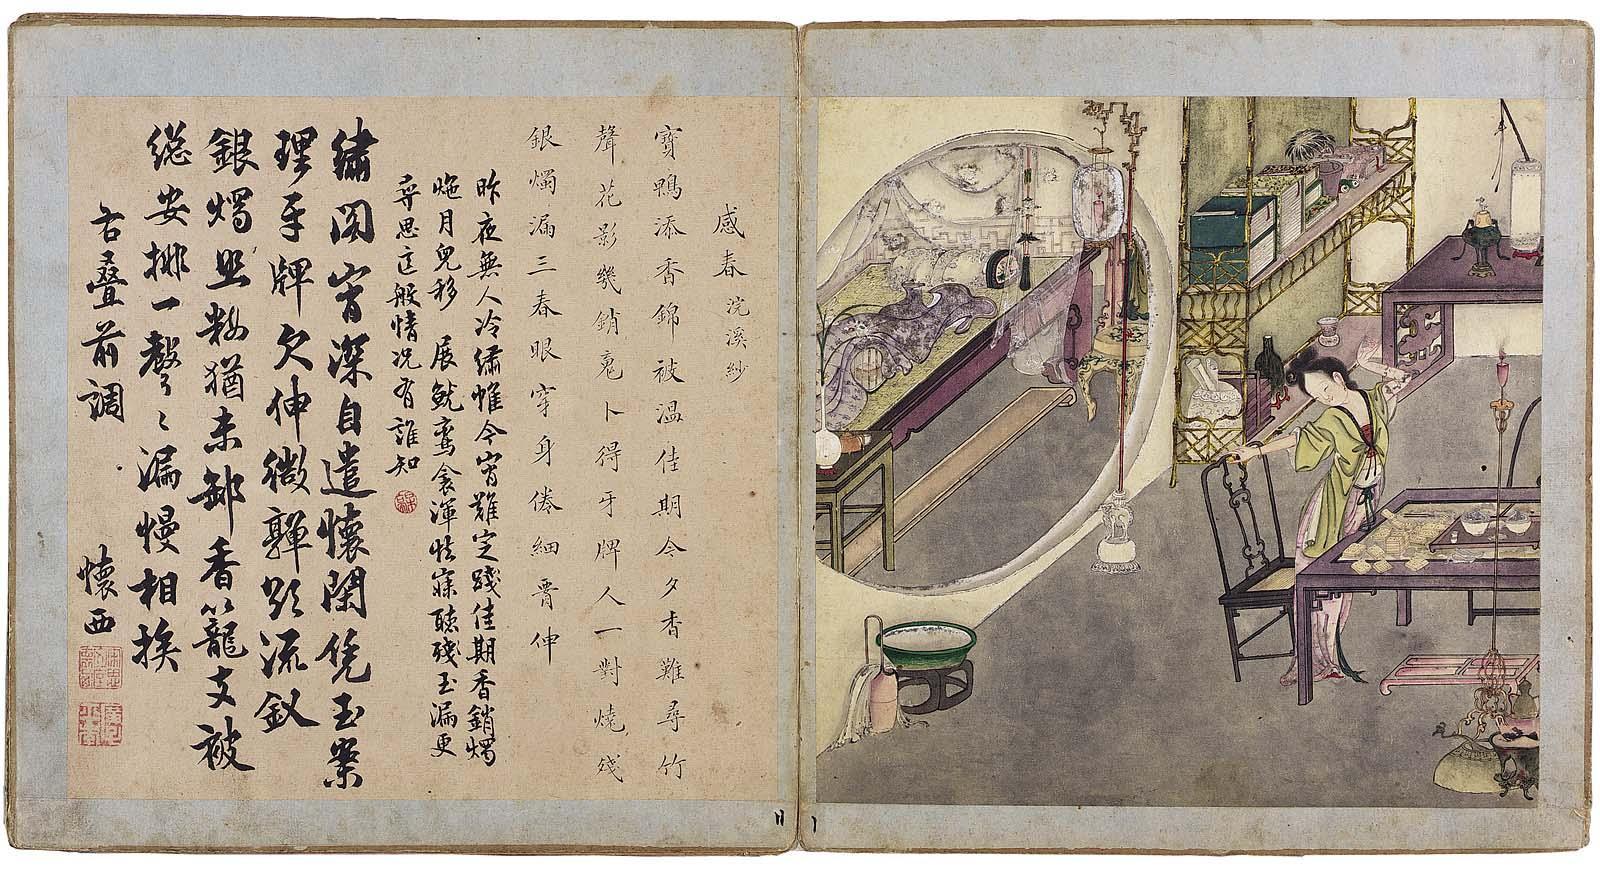 感春 浣溪紗
寶鴨添香錦被温佳期今夕杳難尋竹
聲花影幾銷䰟卜得牙牌人一對燒殘
銀燭漏三春眼穿身倦細胥伸
昨夜無人冷繡帷今宵難定踐佳期香銷燭
灺月兒移 展 鸾衾渾怯寐聴殘玉漏更
尋思這般情况有誰知
繡閣宵深自遣懷閑凭玉案
理牙牌欠伸微嚲影流釵
銀燭照粧猶未卸香籠支被
總安排一聲〻漏慢相挨
右疊前調
懷西